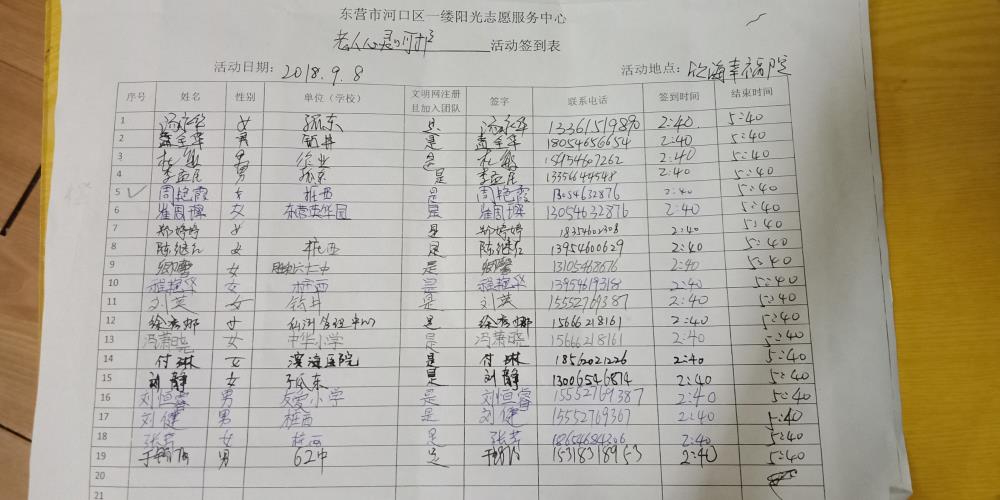 东营市河口区一缕阳光志愿服务中心
老人心灵呵护 活动签到表
活动日期：2018.9.8 活动地点：欣海幸福院
序号 姓名 性别 单位（学校） 文明网注册且加入团队 签字 联系电话 签到时间 结束时间
1 汤永华 女 孤东 是 汤永华 2:40 5:40
2 孟全华 男 钻井 是 孟全华 18054656654 2:40 5:40
3 杜敏 男 是 杜敏 15954607262 2:40 5:40
4 李孟臣 男 孤东 是 李孟臣 13356644548 2:40 5:40
5 周艳霞 女 桩西 是 周艳霞 13054632876 2:40 5:40
6 崔周璨 女 东营英华园 是 崔周璨 13054632876 2:40 5:40
7 郑婷婷 女 是 郑婷婷 18354602308 2:40 5:40
8 陈继红 女 桩西 是 陈继红 13954600629 2:40 5:40
9 女 胜利六十二中 是 13105468676 2:40 5:40
10 程艳华 女 桩西 是 程艳华 13954619318 2:40 5:40
11 刘英 女 钻井 是 刘英 15552769387 2:40 5:40
12 徐秀娜 女 仙河管理中心 是 徐秀娜 15666218161 2:40 5:40
13 冯萧晓 女 中华小学 是 冯萧晓 15666218161 2:40 5:40
14 付琳 女 滨海医院 是 付琳 18562021226 2:40 5:40
15 刘静 女 孤东 是 刘静 13006546874 2:40 5:40
16 刘恒睿 男 友爱小学 是 刘恒睿 15552769387 2:40 5:40
17 刘健 男 桩西 是 刘健 15552769367 2:40 5:40
18 张芳 女 桩西 是 张芳 18654684206 2:40 5:40
19 男 62中 是 15318318953 2:40 5:40
20
21